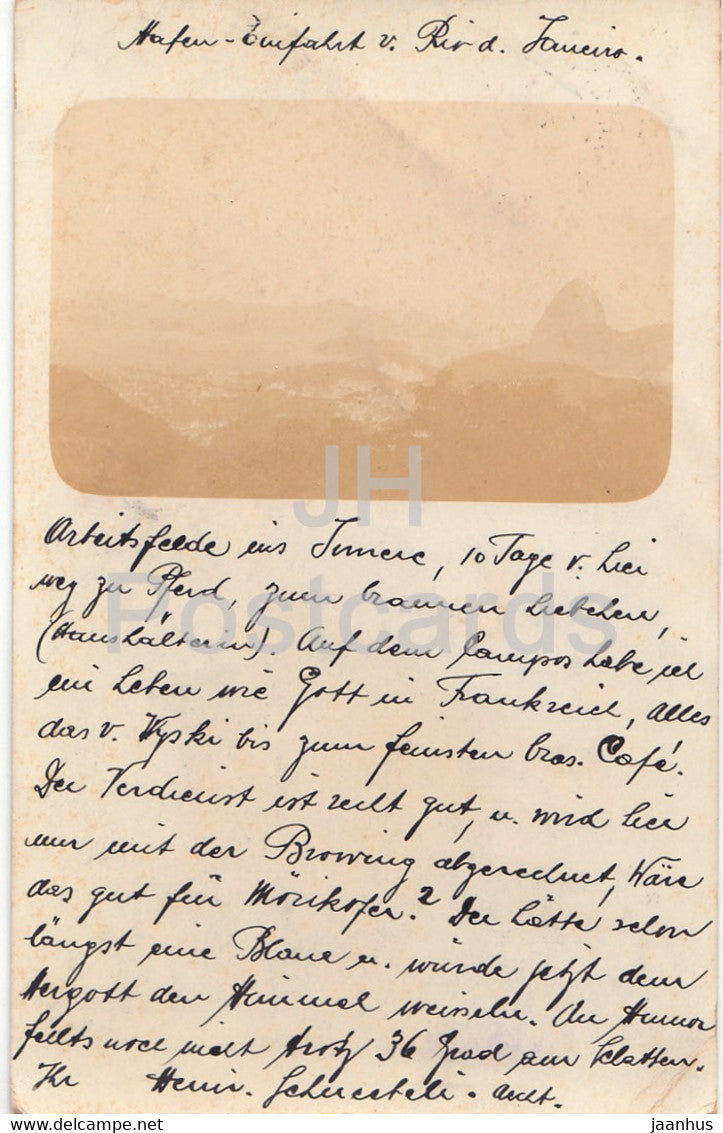 Hafen-Einfahrt v. Rio d. Janeiro.
JH
Postcards
Arbeitsfelde ins Innere, 10 Tage v. hier
weg zu Pferd, zum braunen Liebchen,
(Haushälterin). Auf dem Campos habe ich
ein Leben wie Gott in Frankreich, Alles
das v. Wyski bis zum feinsten bras. Café.
Der Verdienst ist recht gut, u. wird hier
nur mit der Browing abgerechnet, Wäre
das gut für Mörikofer? Der hätte schon
längst eine Blaue u. würde jetzt dem
Hergott den Himmel weisseln. An Humor
fehlts noch nicht trotz 36 Grad am Schatten.
Ihr Heinr. Archt.
www.hippostcard.com
jaanhus